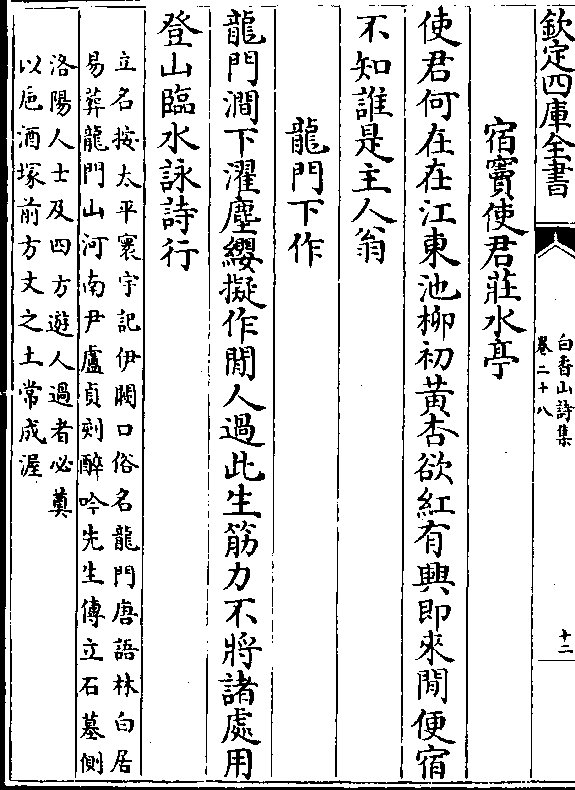 欽定四庫全書
白香山詩集
卷二十八
十二
宿竇使君莊水亭
使君何在在江東池柳初黃杏欲紅有興即來閒便宿
不知誰是主人翁
龍門下作
龍門澗下濯塵纓擬作閒人過此生筋力不將諸處用
登山臨水詠詩行
立名按太平寰宇記伊闕口俗名龍門唐語林白居
易葬龍門山河南尹盧貞刻醉吟先生傳立石墓側
洛陽人士及四方遊人過者必奠
以巵酒塚前方丈之土常成渥